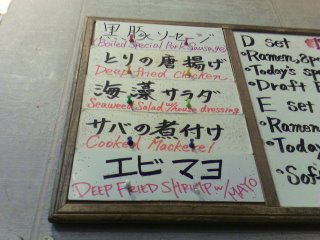 黒豚ソーセージ
Boiled Special Pork Sausages
とりの唐揚げ
Deep fried chicken
海藻サラダ
Seaweed Salad w/house dressing
サバの煮付け
Cooked Mackerel
エビマヨ
DEEP FRIED SHRIMP w/MAYO
D set
•Ramen,
•Today's
•Draft
E set
•Ramen
•Today